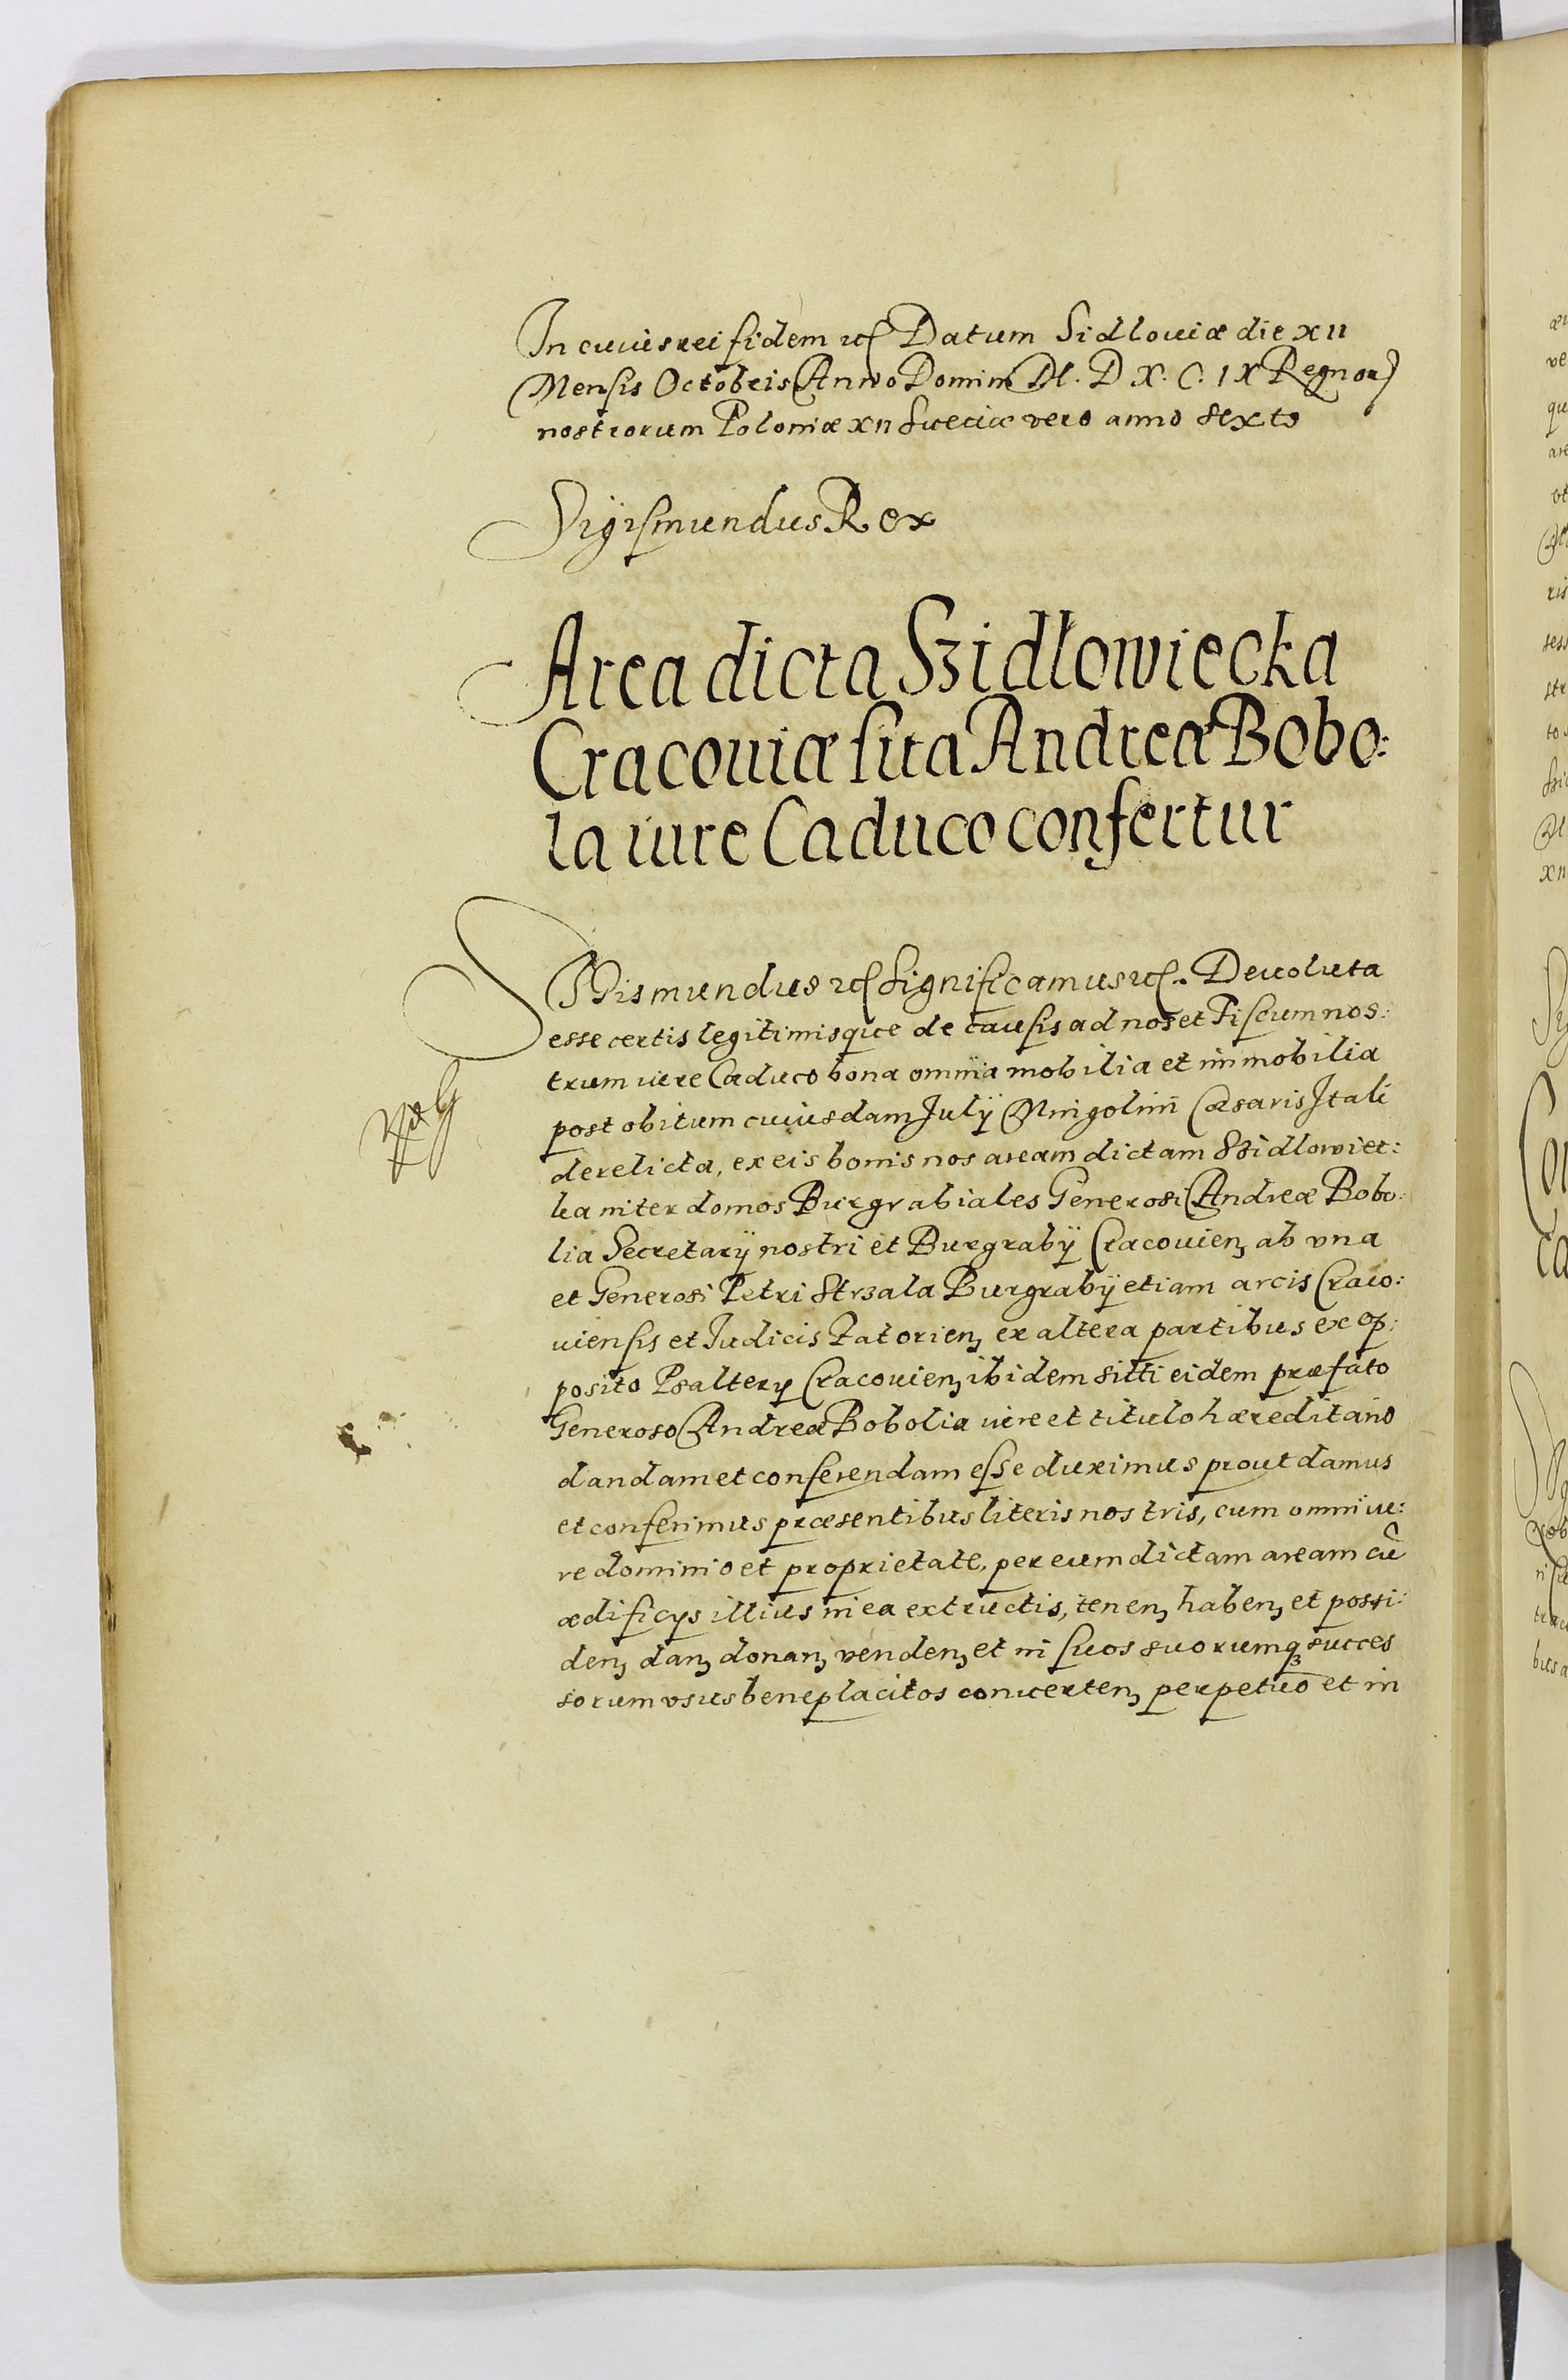 In cuius rei fidem etc Datum Sidlouiæ die XII
Mensis Octobris Anno Domini M. D X. C. IX Regnor
nostrorum Poloniæ XII Sueciæ vero anno sexto
Sigismundus Rex
Area dicta Szidlowiecka
Cracouiæ sita Andreæ Bobo:
la iure Caduco confertur
Sigismundus etc Significamus etc. Deuoluta
esse certis legitimisque de causis ad nos et Fiscum nos:
trum iure Caduco bona omnia mobilia et immobilia
post obitum cuiusdam Julÿ Mingolini Cæsaris Itali
derelicta, ex eis bonis nos aream dictam Szidlowiec:
ka inter domos Burgrabiales Generosi Andreæ Bobo:
lia Secretarÿ nostri et Burgrabÿ Cracouien, ab vna
et Generosi Petri Strzala Burgrabÿ etiam arcis Craco:
uiensis et Judicis Zatorien, ex altera partibus ex op:
posito Psaltery Cracouien, ibidem sitti eidem præfato
Generoso Andreæ Bobolia iure et titulo hæreditario
dandam et conferendam esse duximus prout damus
et conferimus præsentibus literis nostris, cum omni iu:
re dominio et proprietate, per eum dictam aream cū
ædificys illius in ea extructis, tenen, haben, et possi:
den, dan, donan, venden, et in suos suorumq succes
sorum vsus beneplacitos conuerten, perpetuo et in